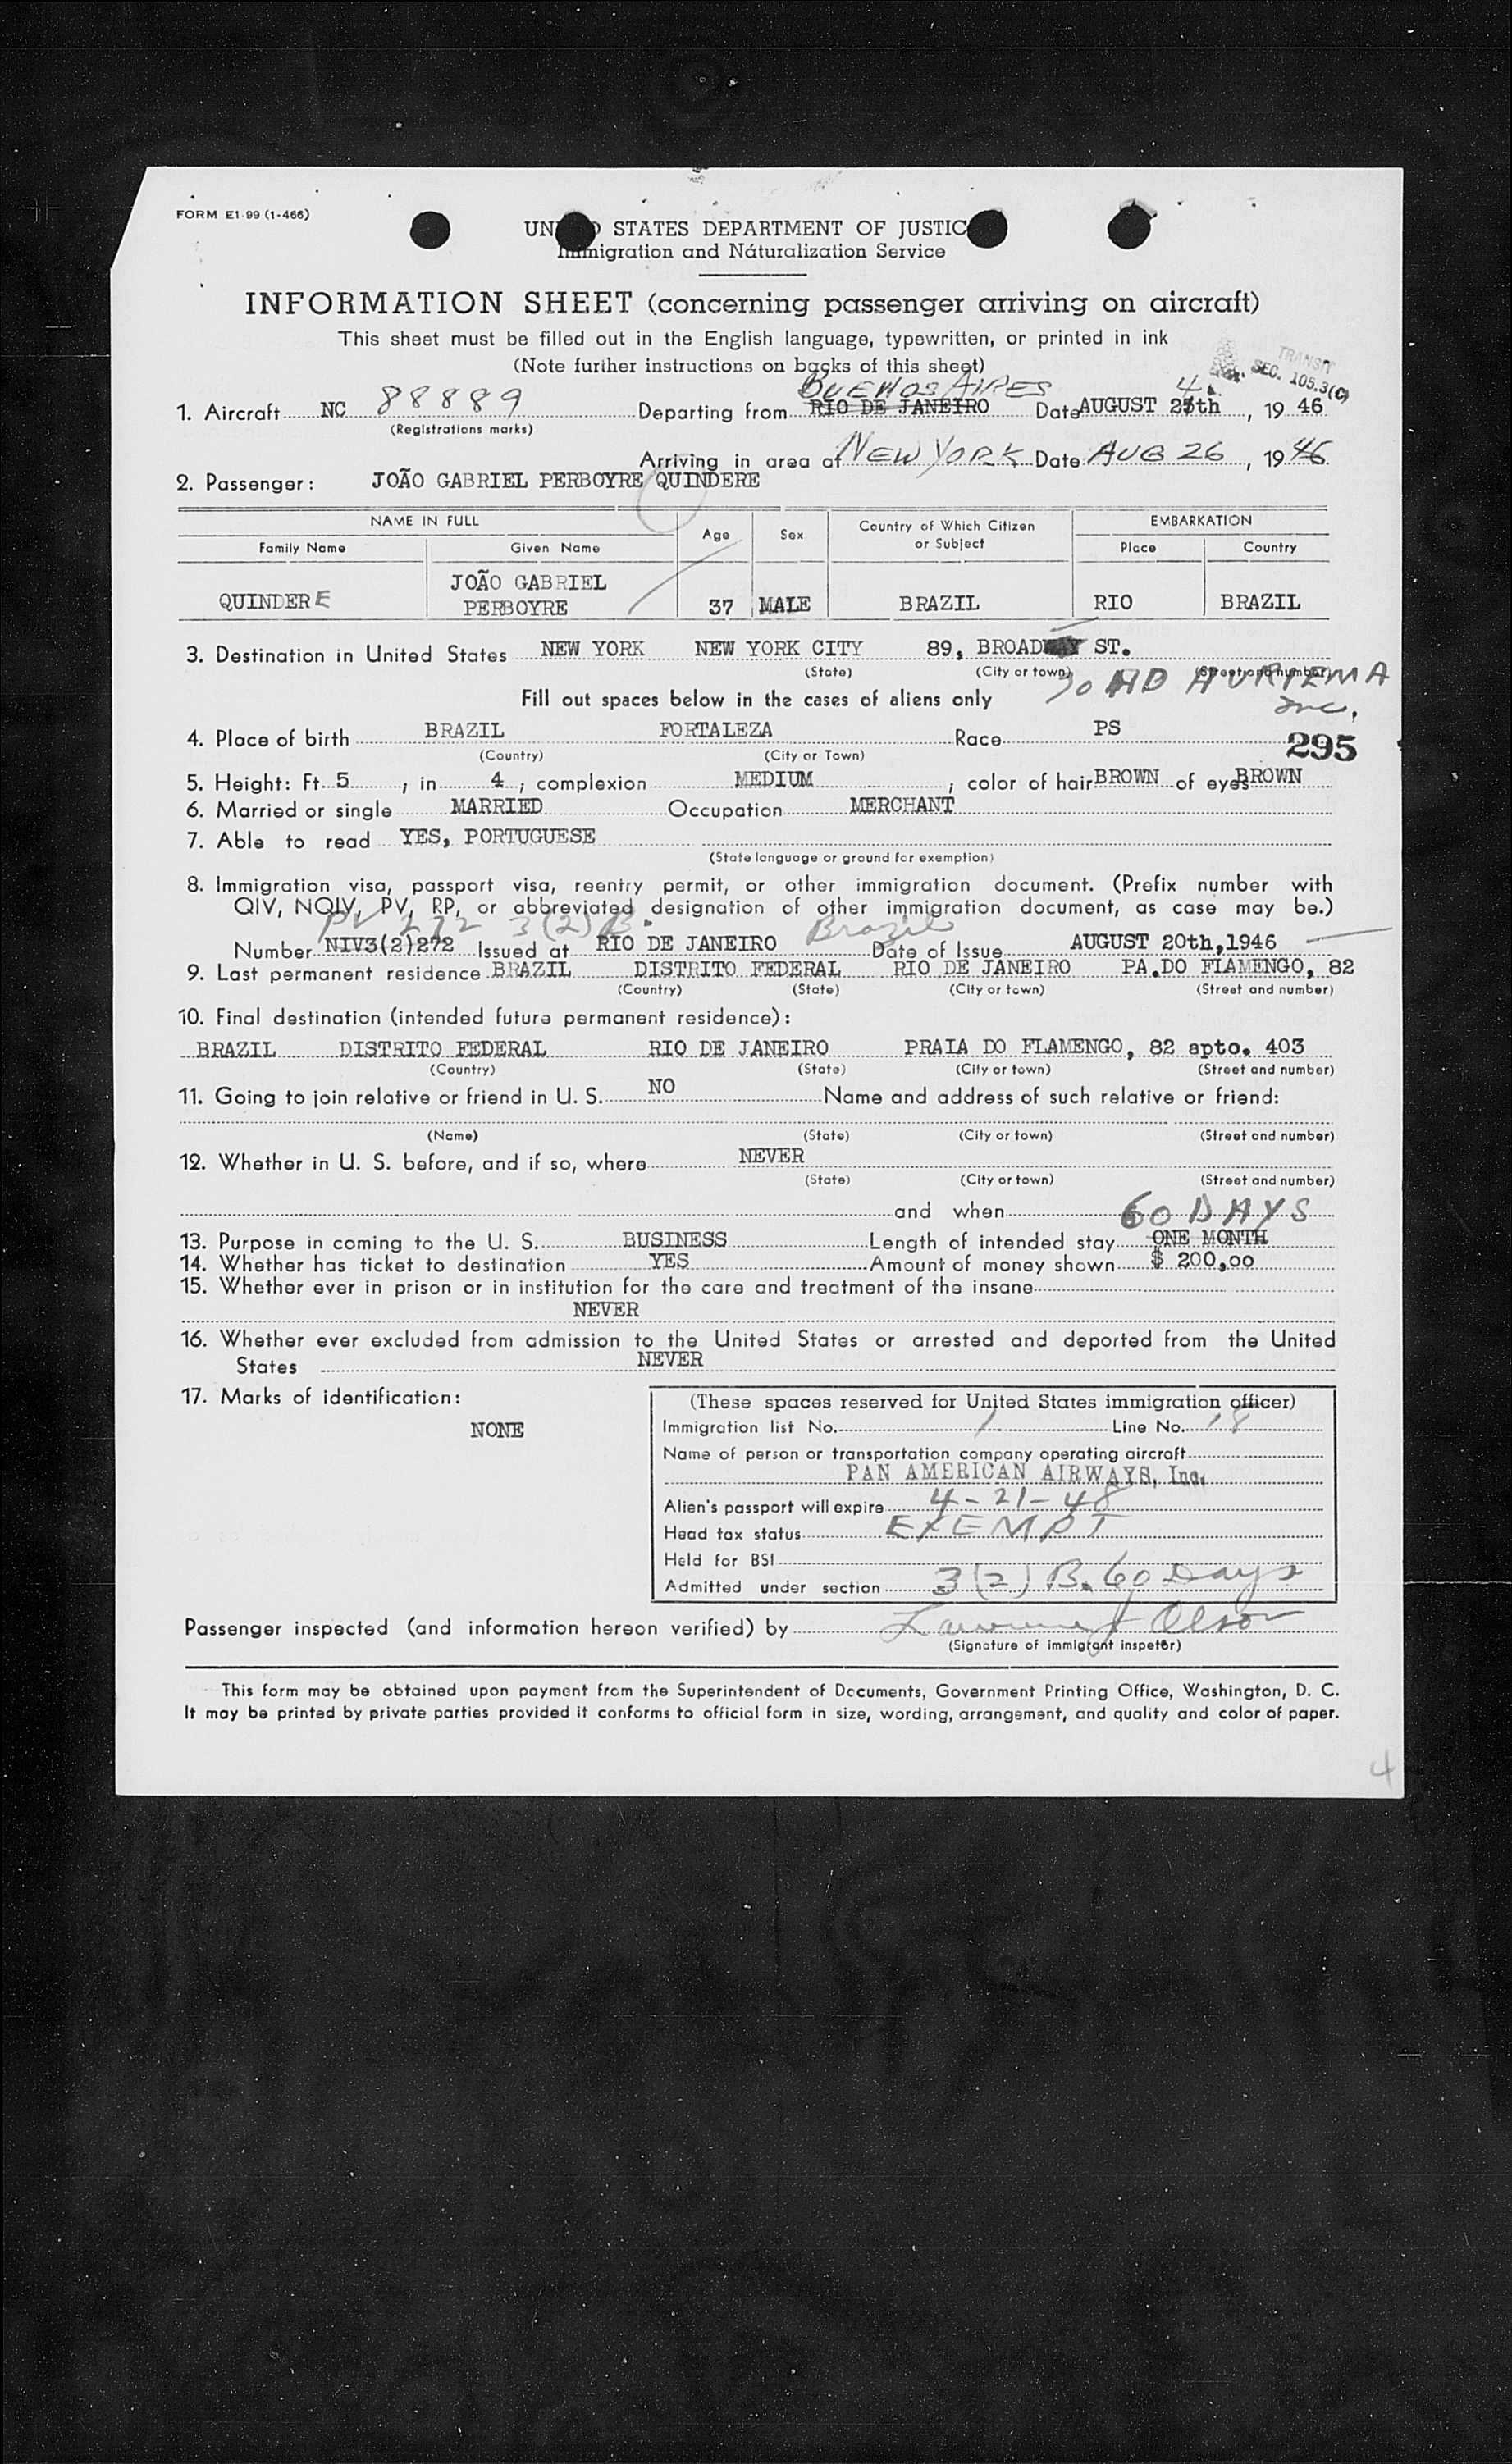 FORM E1-99 (1-466)
UN D STATES DEPARTMENT OF JUSTIC
Immigration and Naturalization Service
INFORMATION SHEET (concerning passenger arriving on aircraft)
This sheet must be filled out in the English language, typewritten, or printed in ink
(Note further instructions on backs of this sheet)
TRANSIT
SEC. 105.3(C)
BUENOS AIRES 4
1. Aircraft NC 88889 Departing from RIO DE JANEIRO Date AUGUST 25th, 19 46
(Registrations marks)
Arriving in area of NEW YORK Date AUG 26, 19 46
2. Passenger: JOÃO GABRIEL PERBOYRE QUINDERE
NAME IN FULL Age Sex Country of Which Citizen or Subject EMBARKATION
Family Name Given Name Place Country
JOÃO GABRIEL
QUINDERE PERBOYRE 37 MALE BRAZIL RIO BRAZIL
3. Destination in United States NEW YORK NEW YORK CITY 89, BROAD ST.
(State) (City or town) (Street and number)
Fill out spaces below in the cases of aliens only
Inc.
4. Place of birth BRAZIL FORTALEZA Race PS
295
(Country) (City or Town)
5. Height: Ft. 5, in 4; complexion MEDIUM; color of hair BROWN of eyes BROWN
6. Married or single MARRIED Occupation MERCHANT
7. Able to read YES, PORTUGUESE
(State language or ground for exemption)
8. Immigration visa, passport visa, reentry permit, or other immigration document. (Prefix number with
QIV, NQIV, PV, RP, or abbreviated designation of other immigration document, as case may be.)
PV 272 3(2)B. Brazil
Number NIV3(2)272 Issued at RIO DE JANEIRO Date of Issue AUGUST 20th,1946
9. Last permanent residence BRAZIL DISTRITO FEDERAL RIO DE JANEIRO PA.DO FLAMENGO, 82
(Country) (State) (City or town) (Street and number)
10. Final destination (intended future permanent residence):
BRAZIL DISTRITO FEDERAL RIO DE JANEIRO PRAIA DO FLAMENGO, 82 apto. 403
(Country) (State) (City or town) (Street and number)
11. Going to join relative or friend in U. S. NO Name and address of such relative or friend:
(Name) (State) (City or town) (Street and number)
12. Whether in U. S. before, and if so, where NEVER
(State) (City or town) (Street and number)
and when
60 DAYS
13. Purpose in coming to the U. S. BUSINESS Length of intended stay ONE MONTH
14. Whether has ticket to destination YES Amount of money shown $ 200,00
15. Whether ever in prison or in institution for the care and treatment of the insane
NEVER
16. Whether ever excluded from admission to the United States or arrested and deported from the United
States NEVER
17. Marks of identification:
NONE
(These spaces reserved for United States immigration officer)
Immigration list No. 1 Line No. 18
Name of person or transportation company operating aircraft
PAN AMERICAN AIRWAYS, Inc.
Alien's passport will expire 4-21-48
Head tax status EXEMPT
Held for BSI
Admitted under section 3(2) B. 60 Days
Passenger inspected (and information hereon verified) by Lawrence J Olson
(Signature of immigrant inspetor)
This form may be obtained upon payment from the Superintendent of Documents, Government Printing Office, Washington, D. C.
It may be printed by private parties provided it conforms to official form in size, wording, arrangement, and quality and color of paper.
4